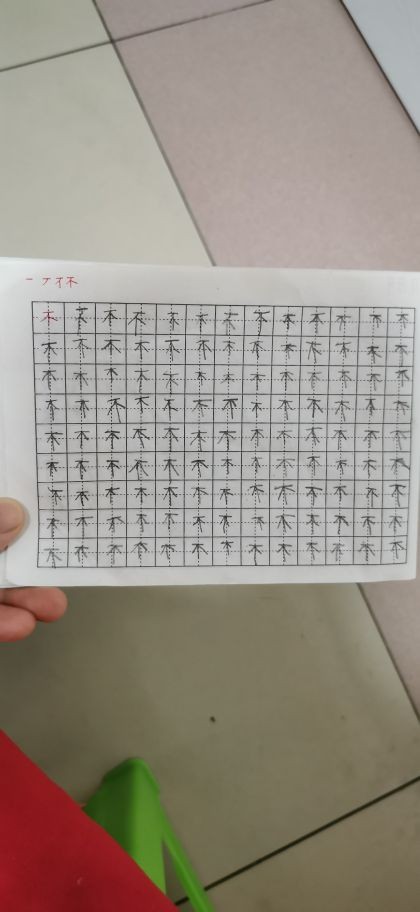 一 丆 不
不不不不不不不不不不不不不
不不不不不不不不不不不不不
不不不不不不不不不不不不不
不不不不不不不不不不不不不
不不不不不不不不不不不不不
不不不不不不不不不不不不不
不不不不不不不不不不不不不
不不不不不不不不不不不不不
不不不不不不不不不不不不不